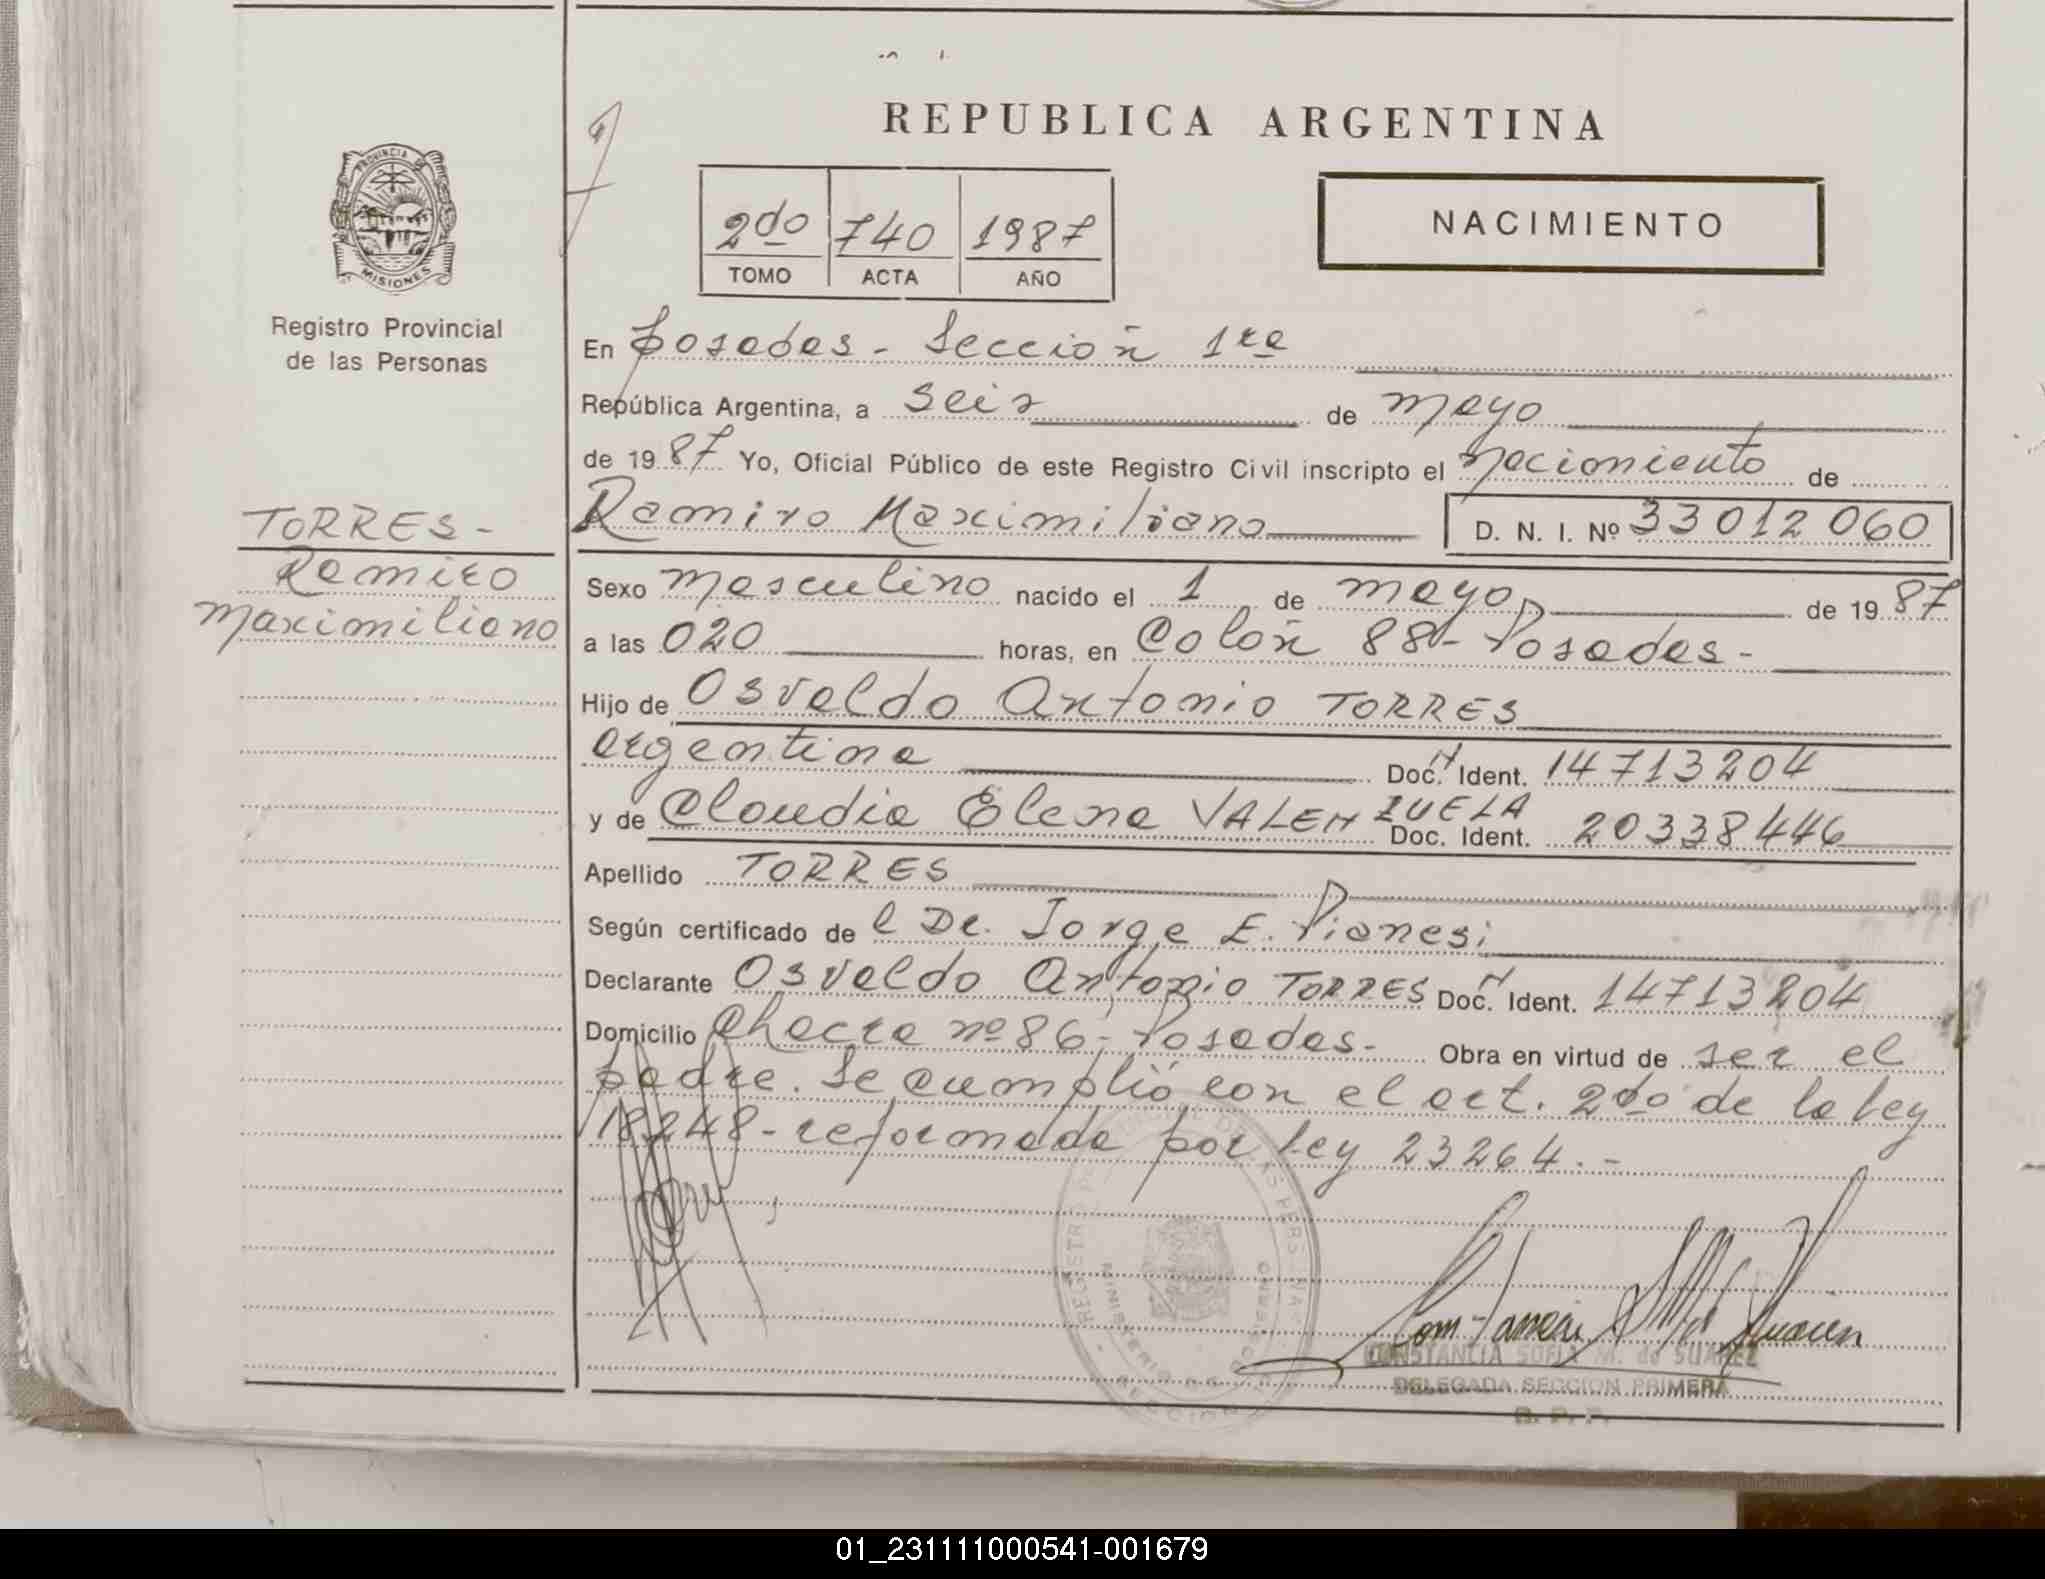 PROVINCIA DE
MISIONES
Registro Provincial
de las Personas
TORRES -
Ramiro
Maximiliano
REPUBLICA ARGENTINA
2do 740 1987
TOMO ACTA AÑO
NACIMIENTO
En Posadas - Sección 1ra
República Argentina, a seis de mayo
de 19 87 Yo, Oficial Público de este Registro Civil inscripto el nacimiento de
Ramiro Maximiliano D. N. I. Nº 33012060
Sexo masculino nacido el 1 de mayo de 19 87
a las 020 horas, en Colón 88 - Posadas -
Hijo de Osvaldo Antonio TORRES
argentina Doc. Ident. 14713204
y de Claudia Elena VALENZUELA Doc. Ident. 20338446
Apellido TORRES
Según certificado de l Dr. Jorge E. Pianesi
Declarante Osvaldo Antonio TORRES Doc. Ident. 14713204
Domicilio Chacra nº 86 - Posadas - Obra en virtud de ser el
padre. Se cumplió con el art. 2do de la ley
18248 - reformada por ley 23264. -
CONSTANCIA SOFIA M. de SUAREZ
DELEGADA SECCION PRIMERA
01_231111000541-001679